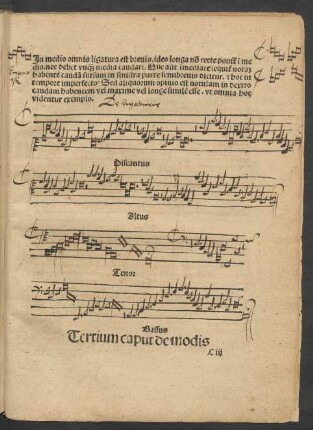 In medio omnis ligatura est breuis. ideo longa nō recte ponit̄ ī me
dio. nec debet vnq̄ media caudari. Que aūt īmediate seq̄t̄ notaz
habentē caudā sursum in sinistra parte semibreuis dicitur. ⁊ hoc in
tempore imperfecto. Sed aliquorum opinio est notulam in dextro
caudam habentem vel maxime vel longe simile esse. vt omnia hoc
videntur exemplo.
Discantus
Altus
Tenor
Bassus
Tertium caput de modis
C iij